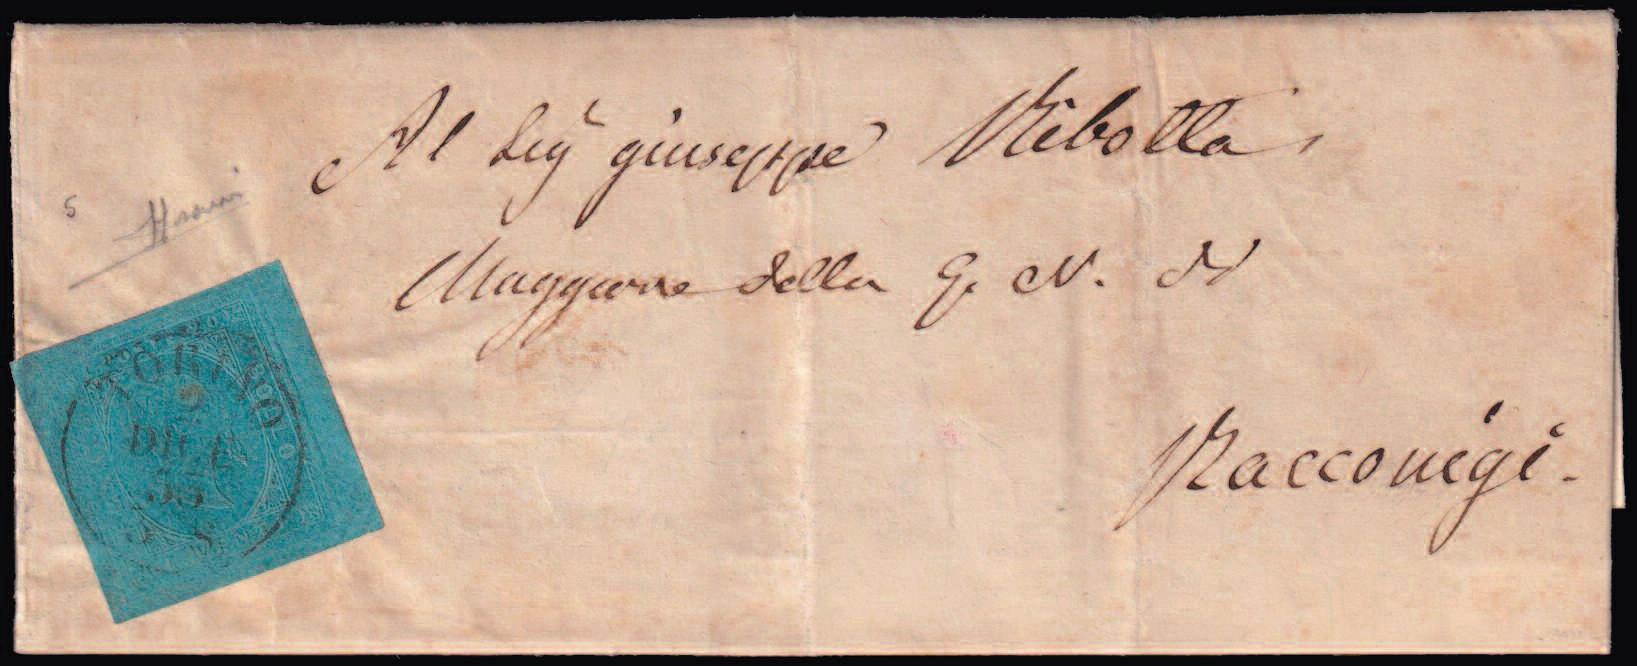 Al Sig.r giuseppe Ribotta
Maggiore della G. N. di
Racconigi.
5
TORINO
9
DIC
53